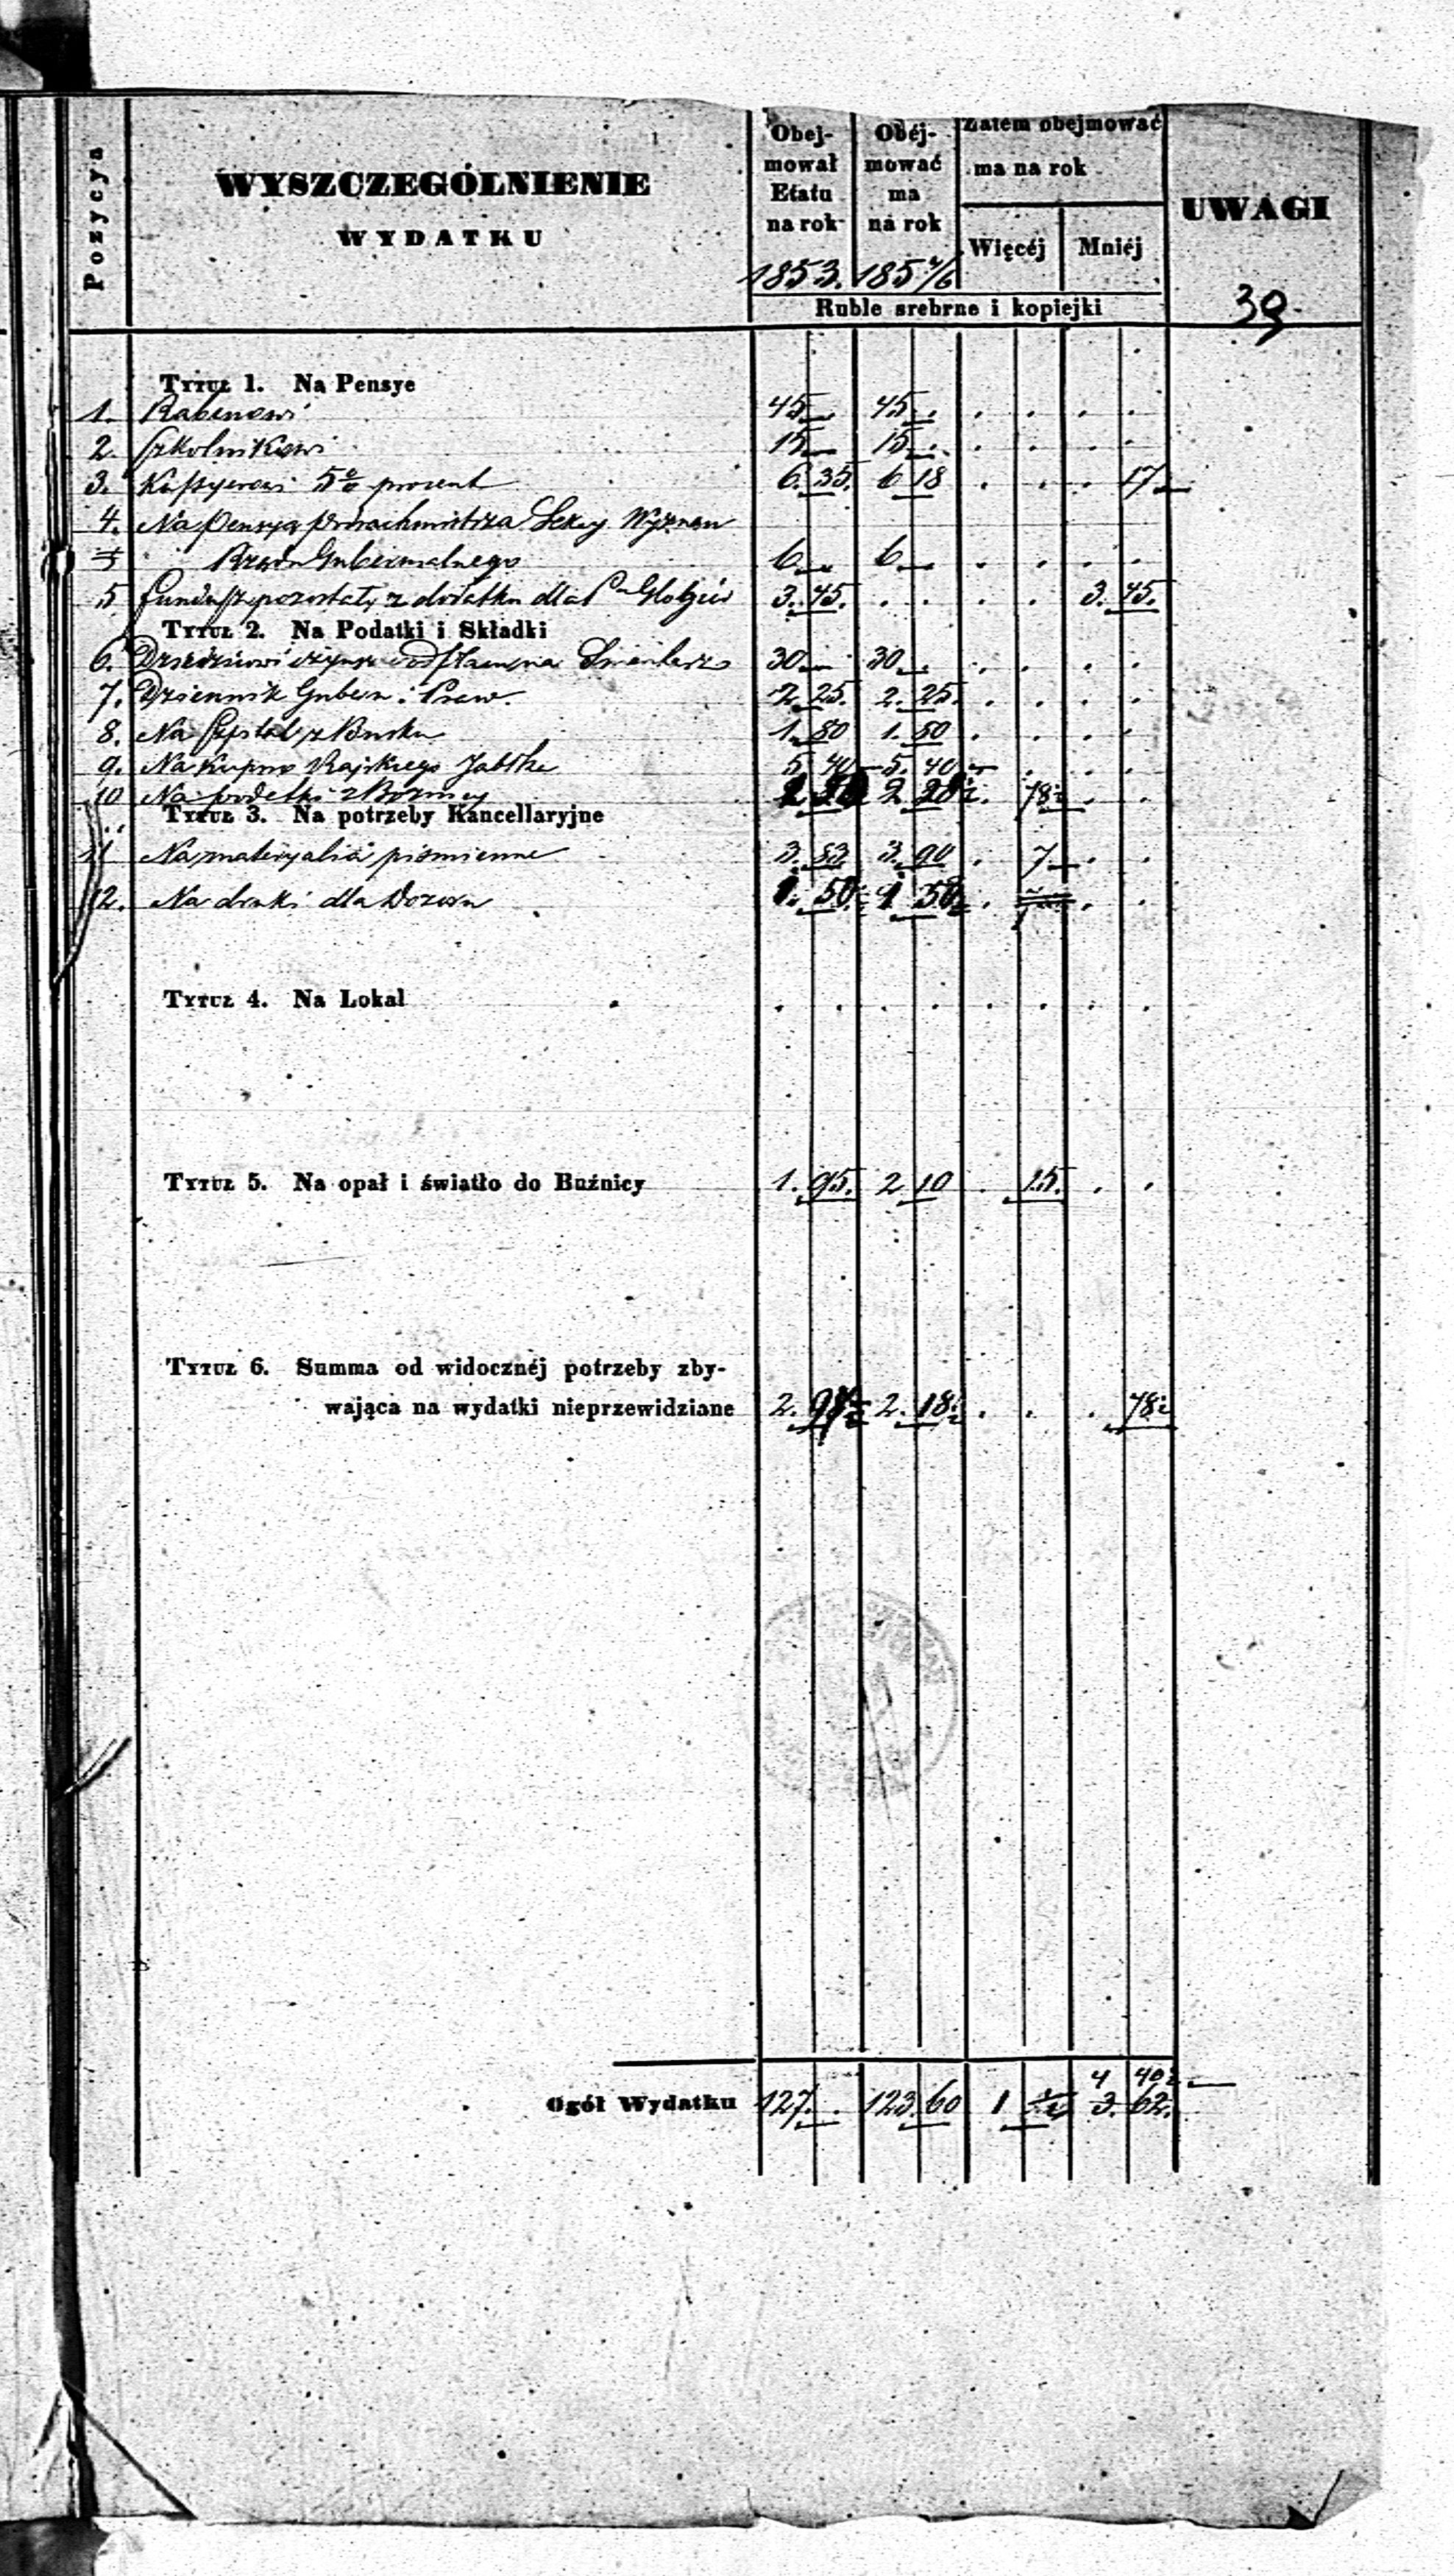 Pozycya
WYSZCZEGÓLNIENIE
WYDATKU
Obej-
mował
Etatu
na rok
1853.
Obéj-
mować
ma
na rok
185 4/6
Zatem obejmować
ma na rok
Więcéj Mniéj
Ruble srebrne i kopiejki
UWAGI
39
Tytuł 1. Na Pensye
1. Rabinowi 45 — 45 . . . . .
2. Szkolnikowi 15 — 15 . . . . .
3. Kassyerowi 5% procent 6. 35. 6 18 . . . 17
4. Na pensyą Porachmistrza Sekcyi Wyznań
Rządu Gubernialnego 6 — 6 — . . . .
5 Fundusz pozostały z dodatku dla 3. 45. . . . . 3. 45.
Tytuł 2. Na Podatki i Składki
6. Dziedzicowi czynsz Smentarz 30 — 30 . . . . .
7. Dziennik Gubern: i Praw. 2. 25. 2. 25. . . . .
8. Na Szpital z Buska 1. 80 1. 80 . . . .
9. Na kupno Rajskiego Jabłka 5 40 5. 40 . . .
10 Na podatki z Bóżnicy 2 20½. 78½ . .
Tytuł 3. Na potrzeby Kancellaryjne
11 Na materyalia piśmienne 3. 83. 3. 90 . 7 . .
12. Na druki dla Dozoru 1. 50 1 50 . . .
Tytuł 4. Na Lokal . . . . . . . .
Tytuł 5. Na opał i światło do Buźnicy 1. 95. 2 10 . 15. . .
Tytuł 6. Summa od widocznéj potrzeby zby-
wająca na wydatki nieprzewidziane 2. 2. 18½ . . . 78½
4 40½
Ogół Wydatku 127. . 123. 60 1 3. 62.